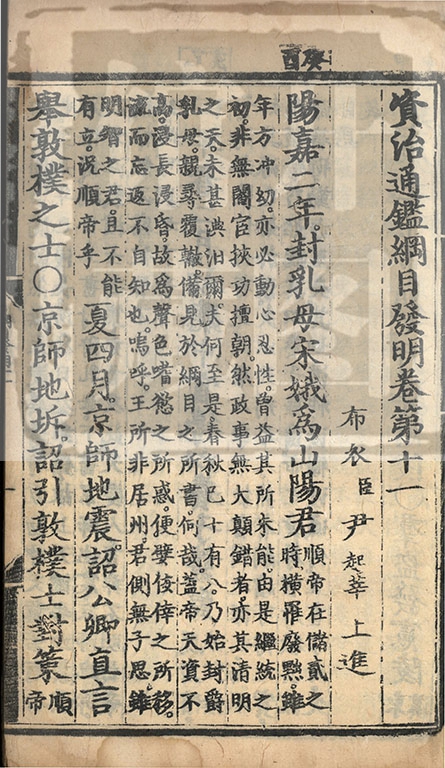 癸酉
資治通鑑綱目發明卷第十一
布衣臣尹起莘上進
陽嘉二年。封乳母宋娥為山陽君
順帝在儲貳之
時橫罹廢黜。雖
年方冲幼。亦必動心忍性。曾益其所未能。由是繼統之
初。非無閹官挾功擅朝。然政事無大顛錯者。亦其清明
之天。未甚淟汨爾。夫何至是春秋巳十有八。乃始封爵
乳母。親尋覆轍。備見於綱目之所書。何哉。蓋帝天資不
高。浸長浸昏。故為聲色嗜慾之所惑。便嬖倿倖之所移。
流而忘返。不自知也。嗚呼。王所非居州。君側無子思。雖
明智之君。且不能
有立。況順帝乎
夏四月。京師地震。詔公卿直言
舉敦樸之士○京師地坼。詔引敦樸士對策
順
帝